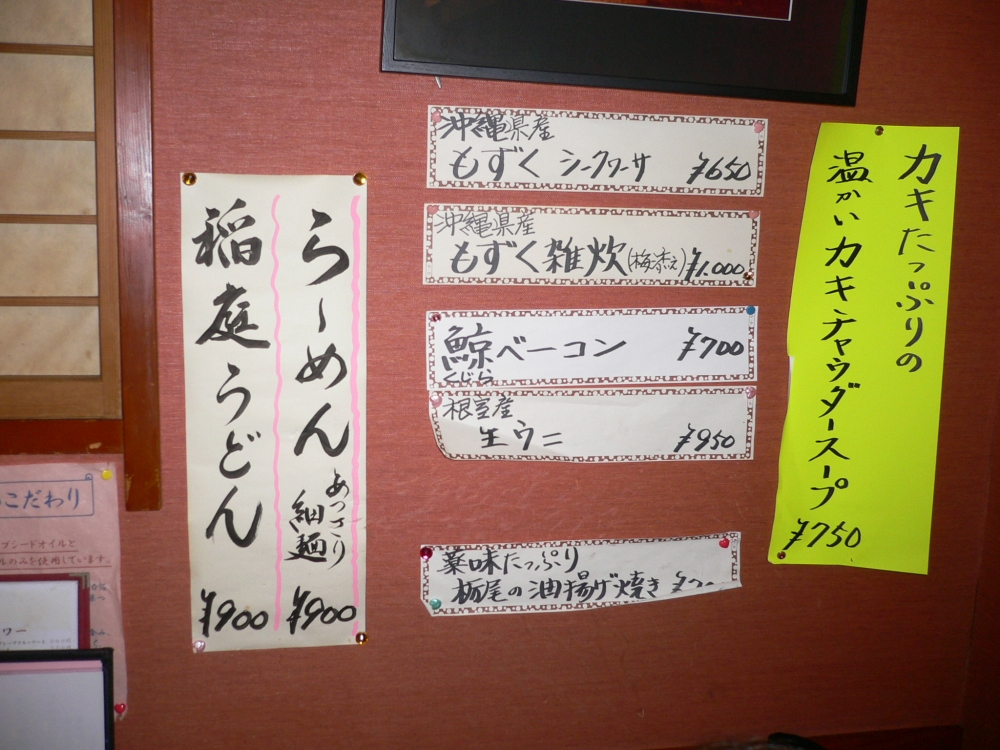 らーめん あっさり細麺 ¥900
稲庭うどん ¥900
沖縄県産
もずく シークヮーサ ¥650
沖縄県産
もずく雑炊(梅添え) ¥1.000
鯨ベーコン ¥700
くじら
根室産
生ウニ ¥950
薬味たっぷり
栃尾の油揚げ焼き
カキたっぷりの
温かいカキチャウダースープ
¥750
こだわり
プシードオイルと
のみを使用しています。